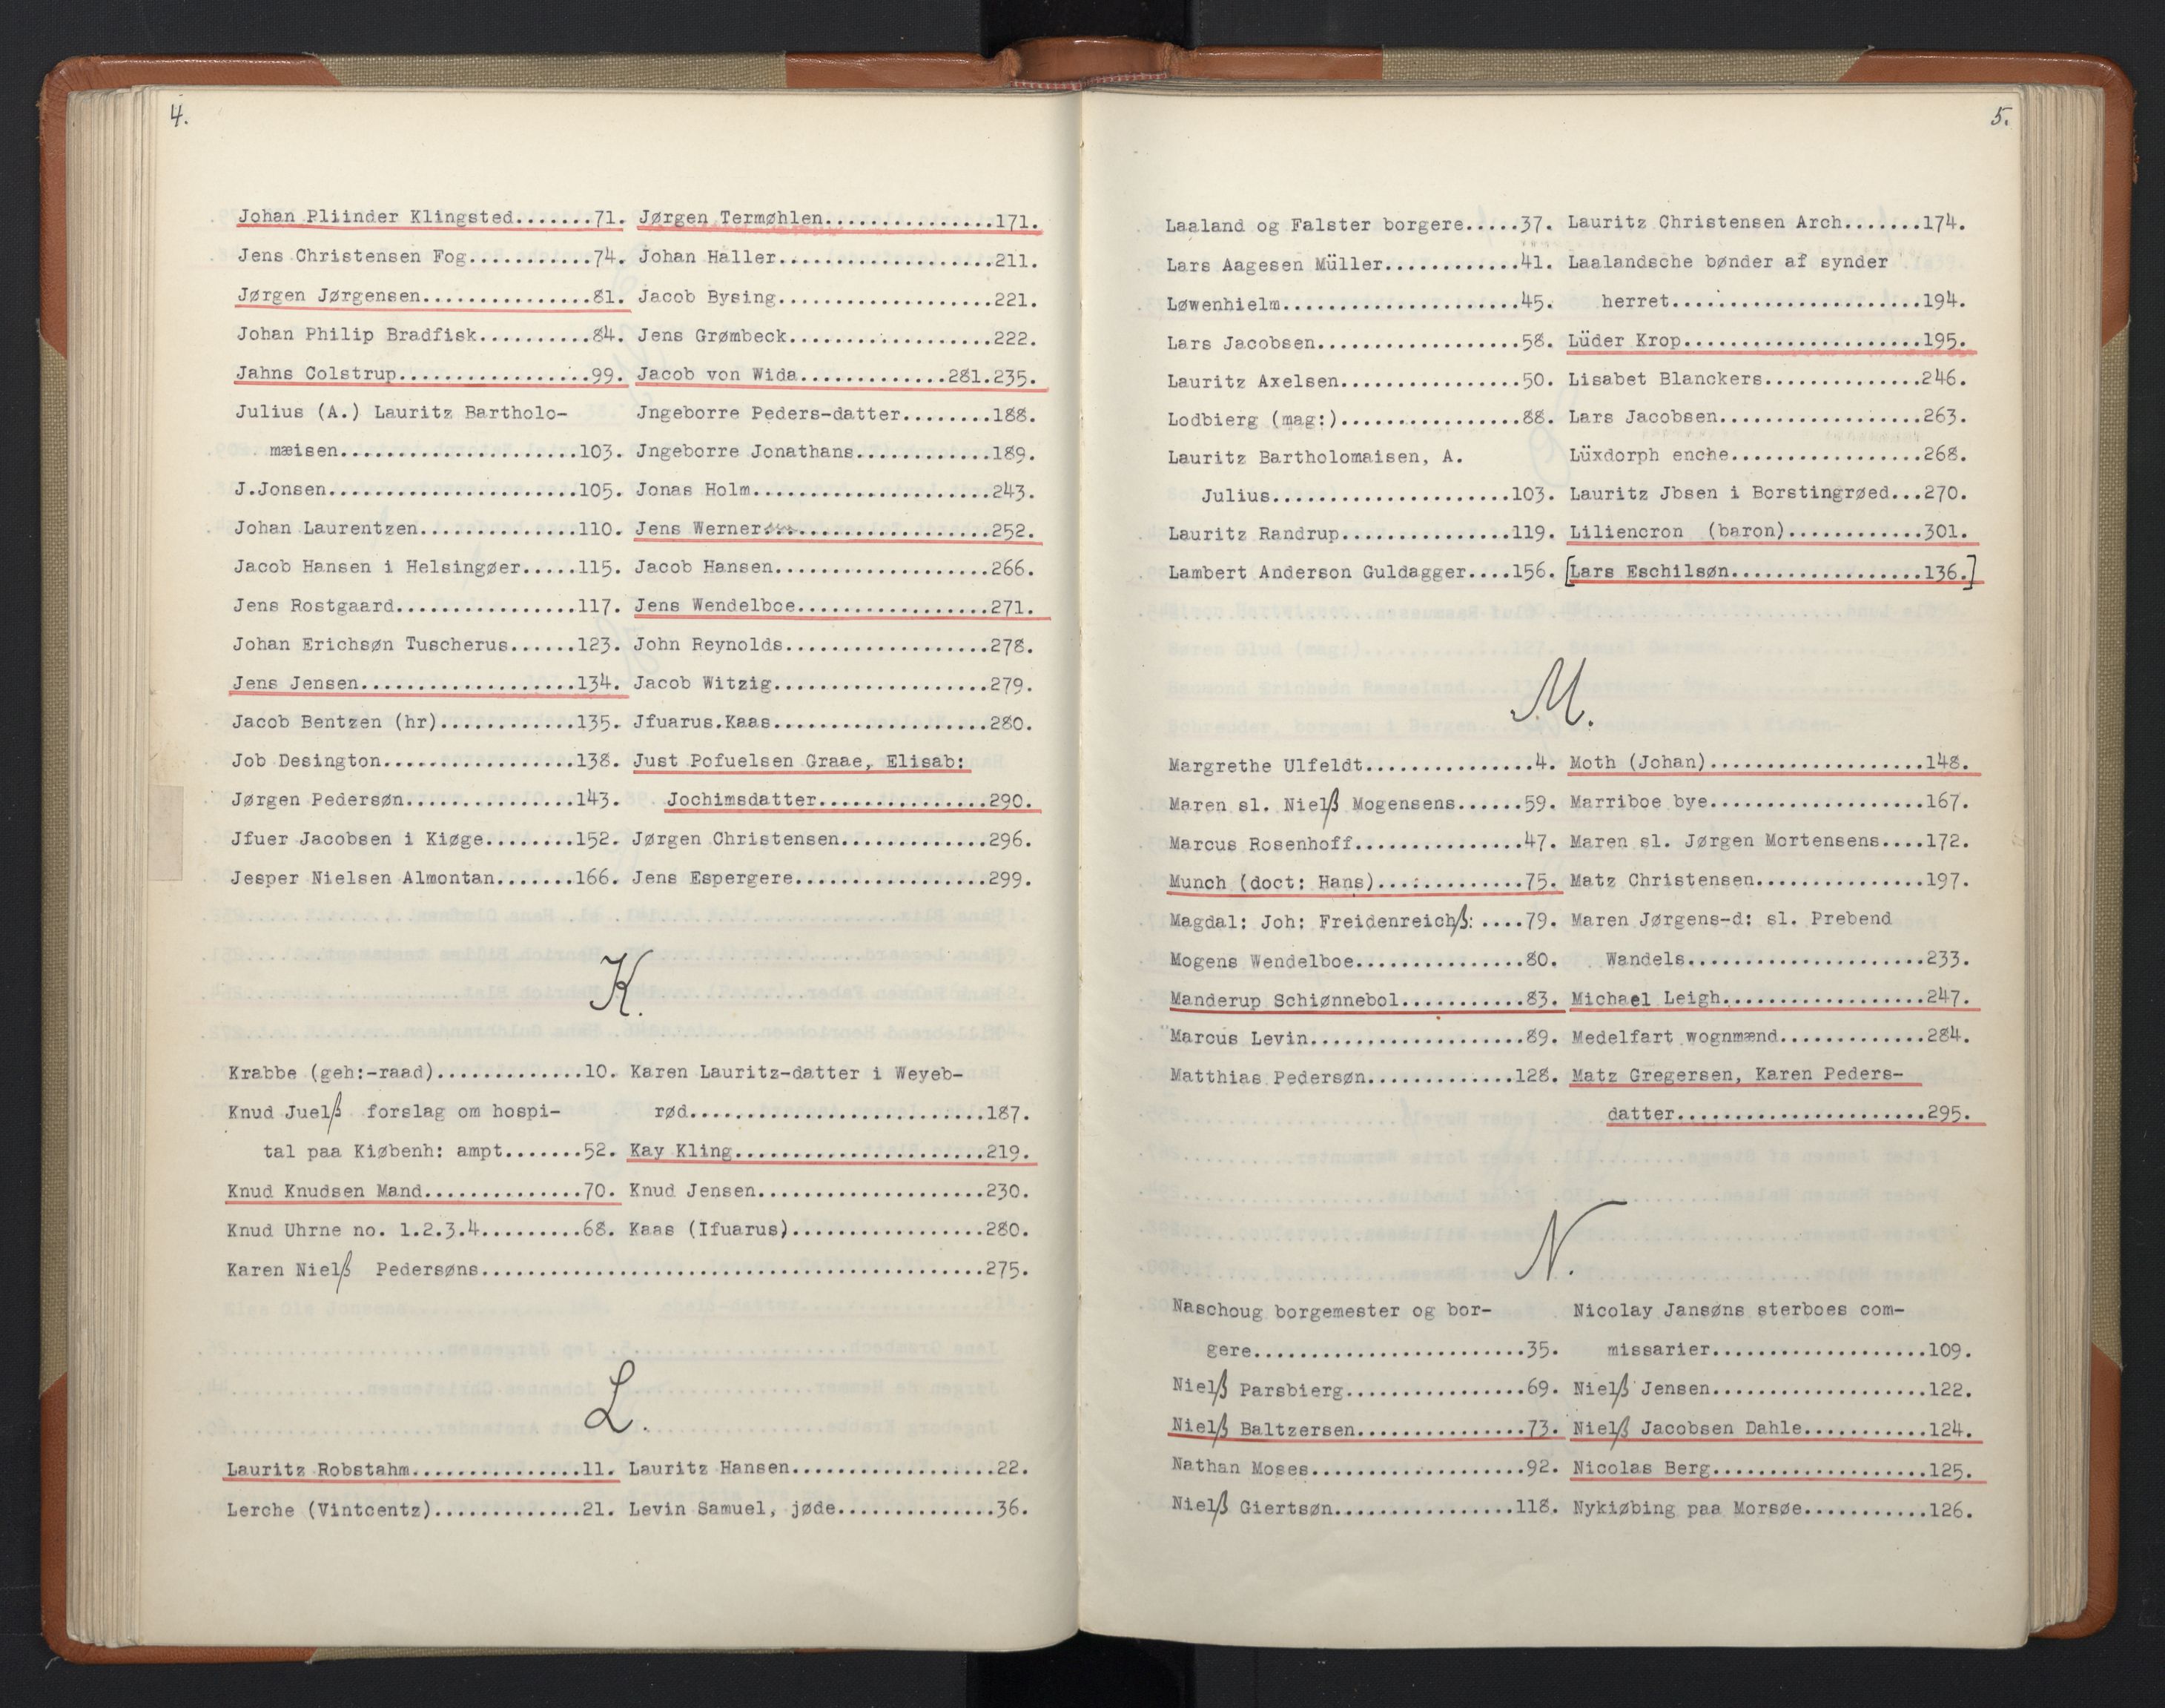 4.
Johan Pliinder Klingsted.......71.
Jens Christensen Fog...........74.
Jørgen Jørgensen...............81.
Johan Philip Bradfisk..........84.
Jahns Colstrup.................99.
Julius (A.) Lauritz Bartholo-
mæisen.....................103.
J.Jonsen......................105.
Johan Laurentzen..............110.
Jacob Hansen i Helsingøer.....115.
Jens Rostgaard................117.
Johan Erichsøn Tuscherus......123.
Jens Jensen...................134.
Jacob Bentzen (hr)............135.
Job Desington.................138.
Jørgen Pedersøn...............143.
Jfuer Jacobsen i Kiøge........152.
Jesper Nielsen Almontan.......166.
Jørgen Termøhlen...............171.
Johan Haller...................211.
Jacob Bysing...................221.
Jens Grømbeck..................222.
Jacob von Wida.............281.235.
Jngeborre Peders-datter........188.
Jngeborre Jonathans............189.
Jonas Holm.....................243.
Jens Werner....................252.
Jacob Hansen...................266.
Jens Wendelboe.................271.
John Reynolds..................278.
Jacob Witzig...................279.
Jfuarus.Kaas...................280.
Just Pofuelsen Graae, Elisab:
Jochimsdatter...............290.
Jørgen Christensen.............296.
Jens Espergere.................299.
K.
Krabbe (geh:-raad).............10.
Knud Juelß forslag om hospi-
tal paa Kiøbenh: ampt.......52.
Knud Knudsen Mand..............70.
Knud Uhrne no. 1.2.3.4.........68.
Karen Lauritz-datter i Weyeb-
rød..........................187.
Kay Kling......................219.
Knud Jensen....................230.
Kaas (Ifuarus).................280.
Karen Nielß Pedersøns.............................................275.
L.
Lauritz Robstahm...............11.
Lerche (Vintcentz).............21.
Lauritz Hansen..................22.
Levin Samuel, jøde..............36.
5.
Laaland og Falster borgere.....37.
Lars Aagesen Müller............41.
Løwenhielm.....................45.
Lars Jacobsen..................58.
Lauritz Axelsen................50.
Lodbierg (mag:)................88.
Lauritz Bartholomaisen, A.
Julius.....................103.
Lauritz Randrup...............119.
Lambert Anderson Guldagger....156.
Lauritz Christensen Arch.......174.
Laalandsche bønder af synder
herret......................194.
Lüder Krop.....................195.
Lisabet Blanckers..............246.
Lars Jacobsen..................263.
Lüxdorph enche.................268.
Lauritz Jbsen i Borstingrøed...270.
Liliencron (baron)............301.
[Lars Eschilsøn.................136.]
M.
Margrethe Ulfeldt...............4.
Maren sl. Nielß Mogensens......59.
Marcus Rosenhoff...............47.
Munch (doct: Hans).............75.
Magdal: Joh: Freidenreichß: ....79.
Mogens Wendelboe...............80.
Manderup Schiønnebol...........83.
Marcus Levin...................89.
Matthias Pedersøn.............128.
Moth (Johan)...................148.
Marriboe bye...................167.
Maren sl. Jørgen Mortensens....172.
Matz Christensen...............197.
Maren Jørgens-d: sl. Prebend
Wandels.....................233.
Michael Leigh..................247.
Medelfart wognmænd.............284.
Matz Gregersen, Karen Peders-
datter......................295.
N.
Naschoug borgemester og bor-
gere........................35.
Nielß Parsbierg................69.
Nielß Baltzersen...............73.
Nathan Moses...................92.
Nielß Giertsøn................118.
Nicolay Jansøns sterboes com-
missarier...................109.
Nielß Jensen...................122.
Nielß Jacobsen Dahle...........124.
Nicolas Berg...................125.
Nykiøbing paa Morsøe...........126.